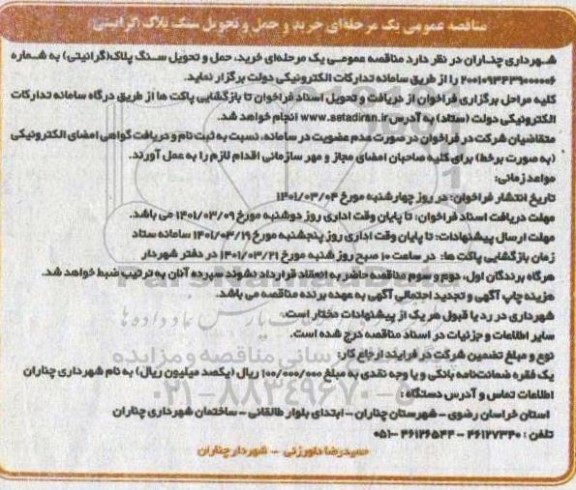 مناقصه عمومی یک مرحله‌ای خرید و حمل و تحویل سنگ پلاک (گرانیتی)
شهرداری چناران در نظر دارد مناقصه عمومی یک مرحله‌ای خرید، حمل و تحویل سنگ پلاک(گرانیتی) به شماره
۲۰۰۱۰۹۳۴۳۹۰۰۰۰۰۶ را از طریق سامانه تدارکات الکترونیکی دولت برگزار نماید.
کلیه مراحل برگزاری فراخوان از دریافت و تحویل اسناد فراخوان تا بازگشایی پاکت ها از طریق درگاه سامانه تدارکات
الکترونیکی دولت (ستاد) به آدرس www.setadiran.ir انجام خواهد شد.
متقاضیان شرکت در فراخوان در صورت عدم عضویت در سامانه، نسبت به ثبت نام و دریافت گواهی امضای الکترونیکی
(به صورت برخط) برای کلیه صاحبان امضای مجاز و مهر سازمانی اقدام لازم را به عمل آورند.
مواعد زمانی:
تاریخ انتشار فراخوان: در روز چهارشنبه مورخ ۱۴۰۱/۰۳/۰۴
مهلت دریافت اسناد فراخوان: تا پایان وقت اداری روز دوشنبه مورخ ۱۴۰۱/۰۳/۰۹ می باشد.
مهلت ارسال پیشنهادات: تا پایان وقت اداری روز پنجشنبه مورخ ۱۴۰۱/۰۳/۱۹ سامانه ستاد
زمان بازگشایی پاکت ها: در ساعت ۱۰ صبح روز شنبه مورخ ۱۴۰۱/۰۳/۲۱ در دفتر شهردار
هرگاه برندگان اول، دوم و سوم مناقصه حاضر به انعقاد قرارداد نشوند سپرده آنان به ترتیب ضبط خواهد شد.
هزینه چاپ آگهی و تجدید احتمالی آگهی به عهده برنده مناقصه می باشد.
شهرداری در رد یا قبول هر یک از پیشنهادات مختار است.
سایر اطلاعات و جزئیات در اسناد مناقصه درج شده است.
نوع و مبلغ تضمین شرکت در فرایند ارجاع کار:
یک فقره ضمانت‌نامه بانکی و یا وجه نقدی به مبلغ ۱۰۰/۰۰۰/۰۰۰ ریال (یکصد میلیون ریال) به نام شهرداری چناران
اطلاعات تماس و آدرس دستگاه :
استان خراسان رضوی – شهرستان چناران – ابتدای بلوار طالقانی – ساختمان شهرداری چناران
تلفن : ۴۶۱۲۷۳۴۰ – ۴۶۱۲۶۵۴۴ -۰۵۱
حمیدرضا داورزنی – شهردار چناران
ParsNamadData
رسانی مناقصه و مزایده
۰۲۱-۸۸۳۴۹۶۷۰-۵